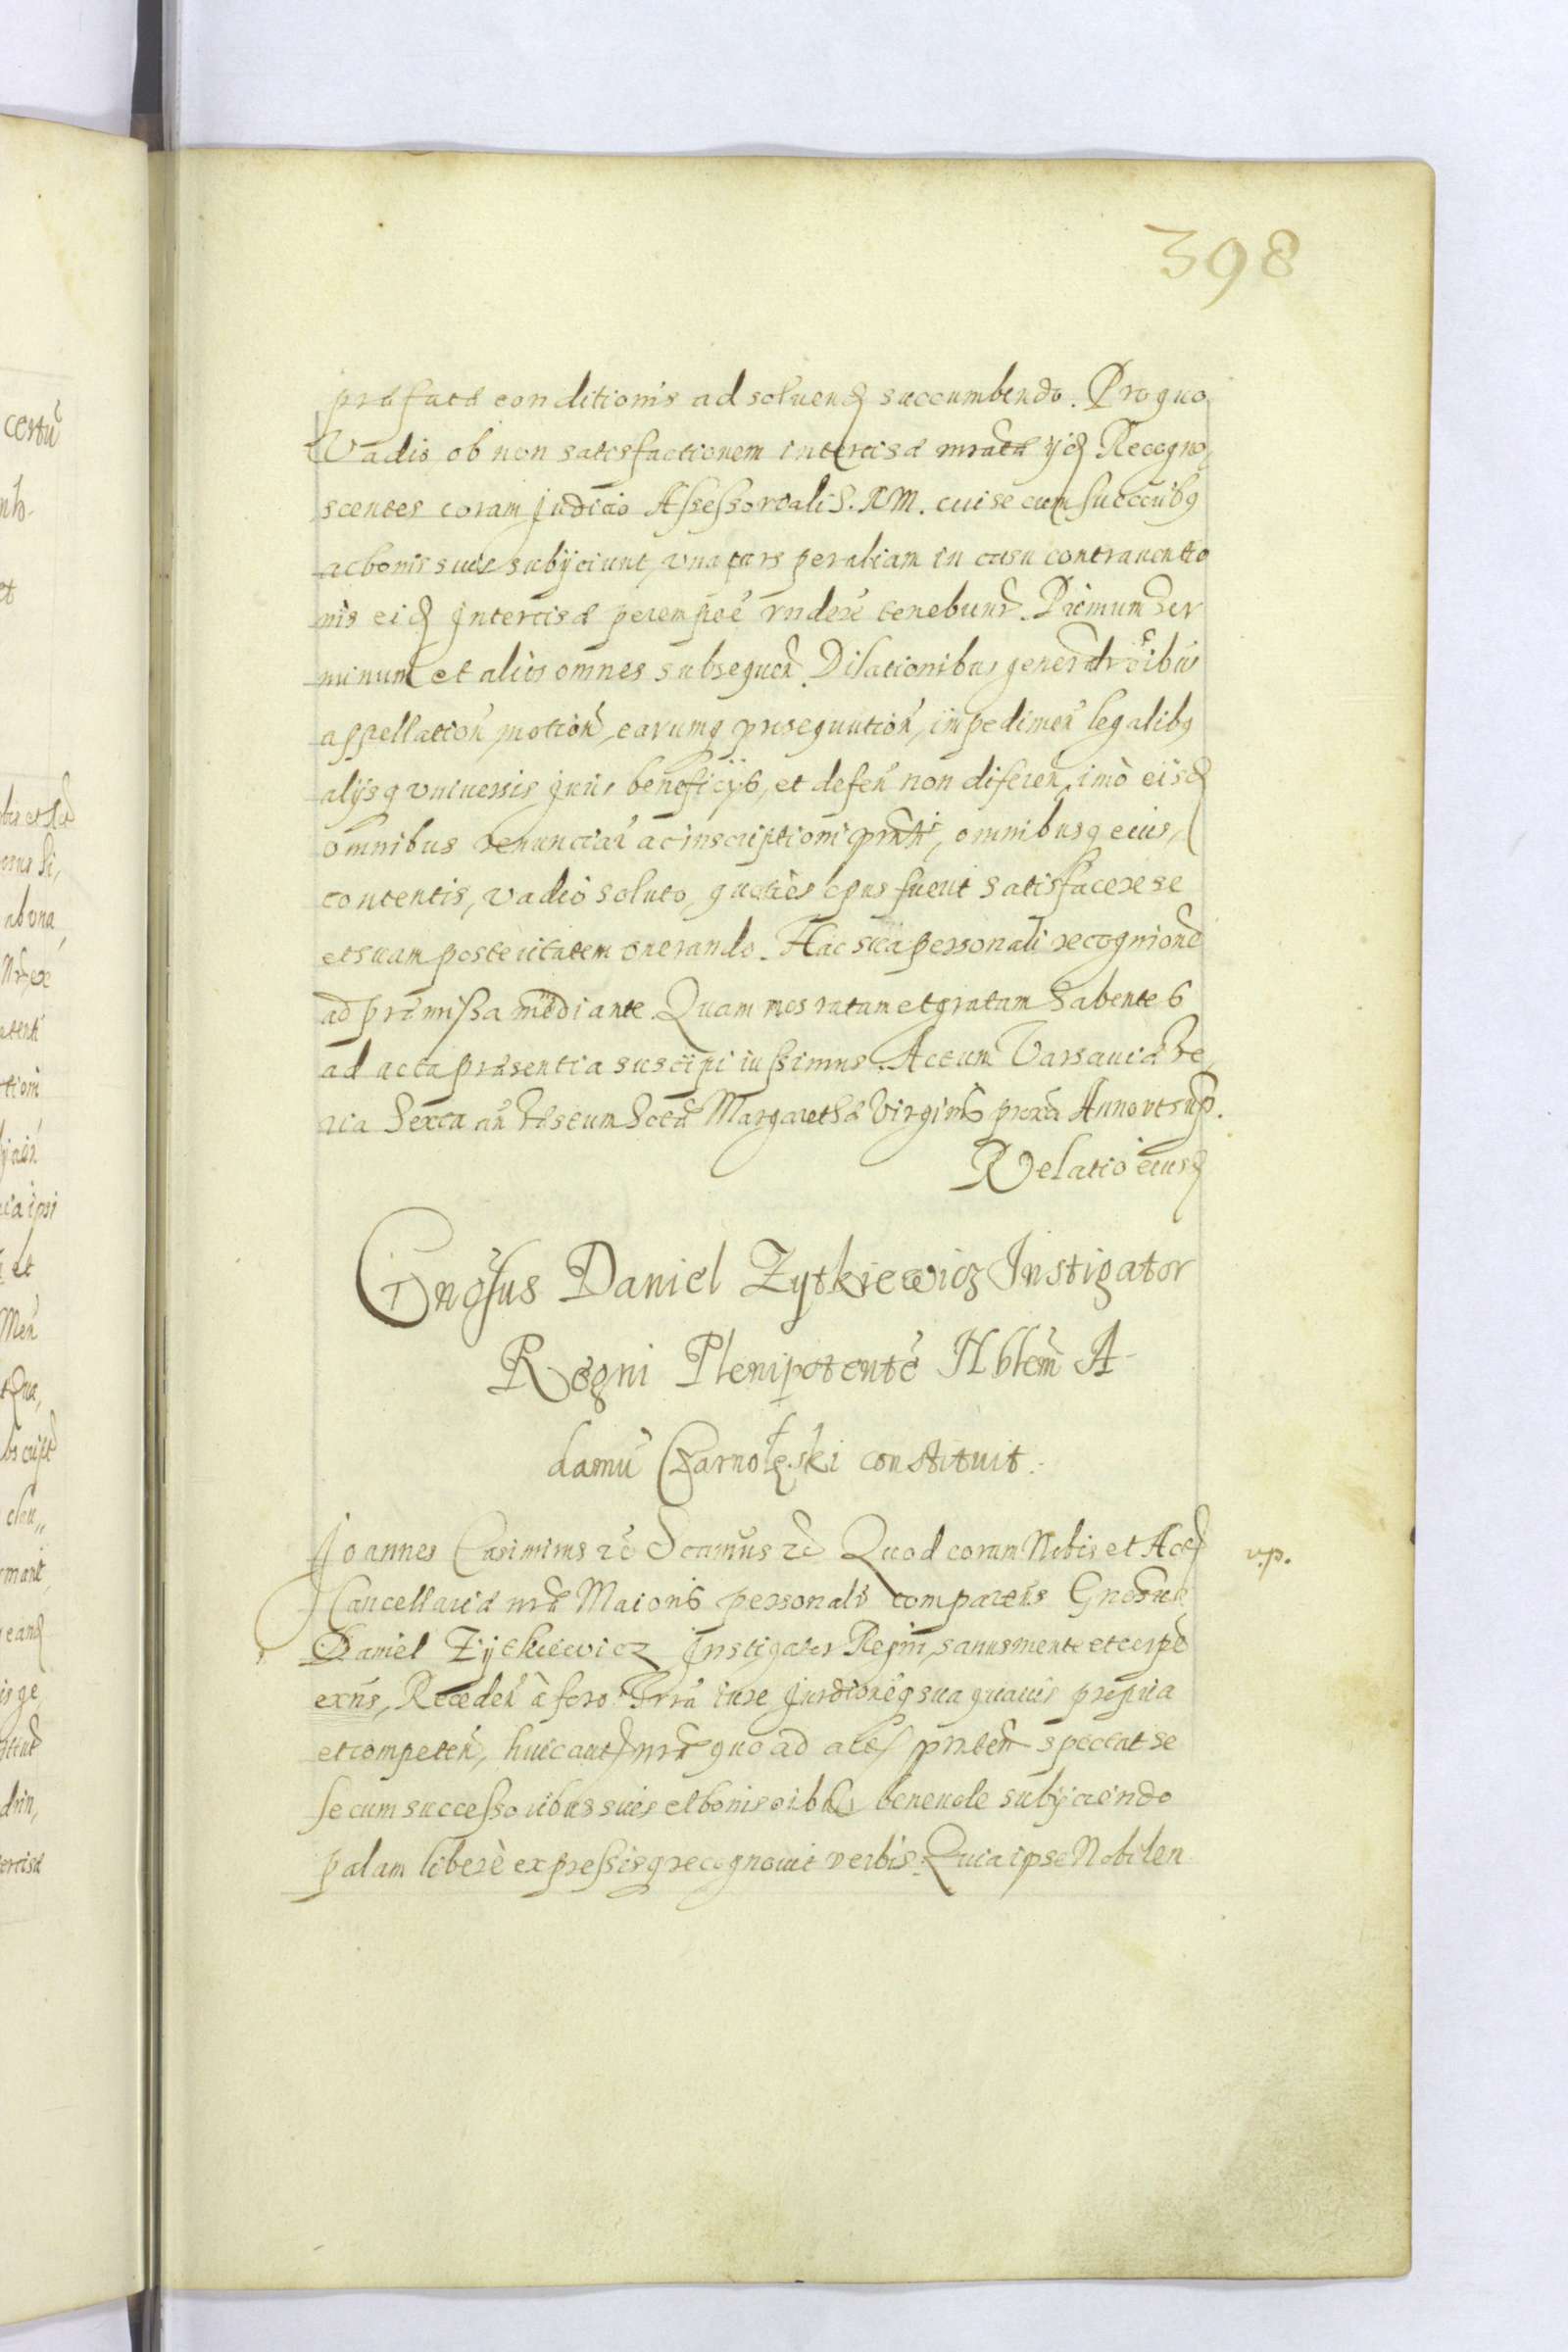 398
præfatæ conditionis ad soluend succumbendo. Pro quo
Vadio ob non satisfactionem intercisæ mratæ ijd Recogno,
scentes coram judicio Assessoriali S. R M. cui se cum succibg
ac bonis suis subijciunt, vna pars per aliam in casu contrauentio
nis eid Intercisæ perempte rndere tenebunt. Primum Ter
minum et alios omnes subsequen. Dilationibus generalroibus
appellation, motion, earumq prosequution, impedimen legalibg
alijsq vniuersis juris beneficijs, et defen non diferen, imò eisd
omnibus renunciar ac inscriptioni pnti, omnibusq eius,
contentis, vadio soluto, quoties opus fuerit satisfacere se
et suam posteritatem onerando. Hac sua personali recognione
ad præmissa mediante. Quam nos ratam et gratam habentes
ad acta præsentia suscipi iussimus. Actum Varsauiæ Fe,
ria Sexta an Festum Sctæ Margarethæ Virginis proxa Anno vt sup.
Relatio eiusd
Gnosus Daniel Zytkiewicz Instigator
Regni Plenipotente Nblem A-
damu Czarnołęski constituit.
Joannes Casimirus rc Scamus rc Quod coram Nobis et Actis
Cancellariæ nræ Maioris personalr comparens Gnosus
v.p.
Daniel Zytkiewicz Instigator Regni, sanus mente et corpe
exns, Receden à foro Trrá iure Jurdioneq sua quauis propria
et competen, huic autem nræ quo ad actum pntem spectat se
se cum successoribus suis et bonis oibus beneuole subijciendo
palam liberè expressisq recognouit verbis. Quia ipse Nobilem